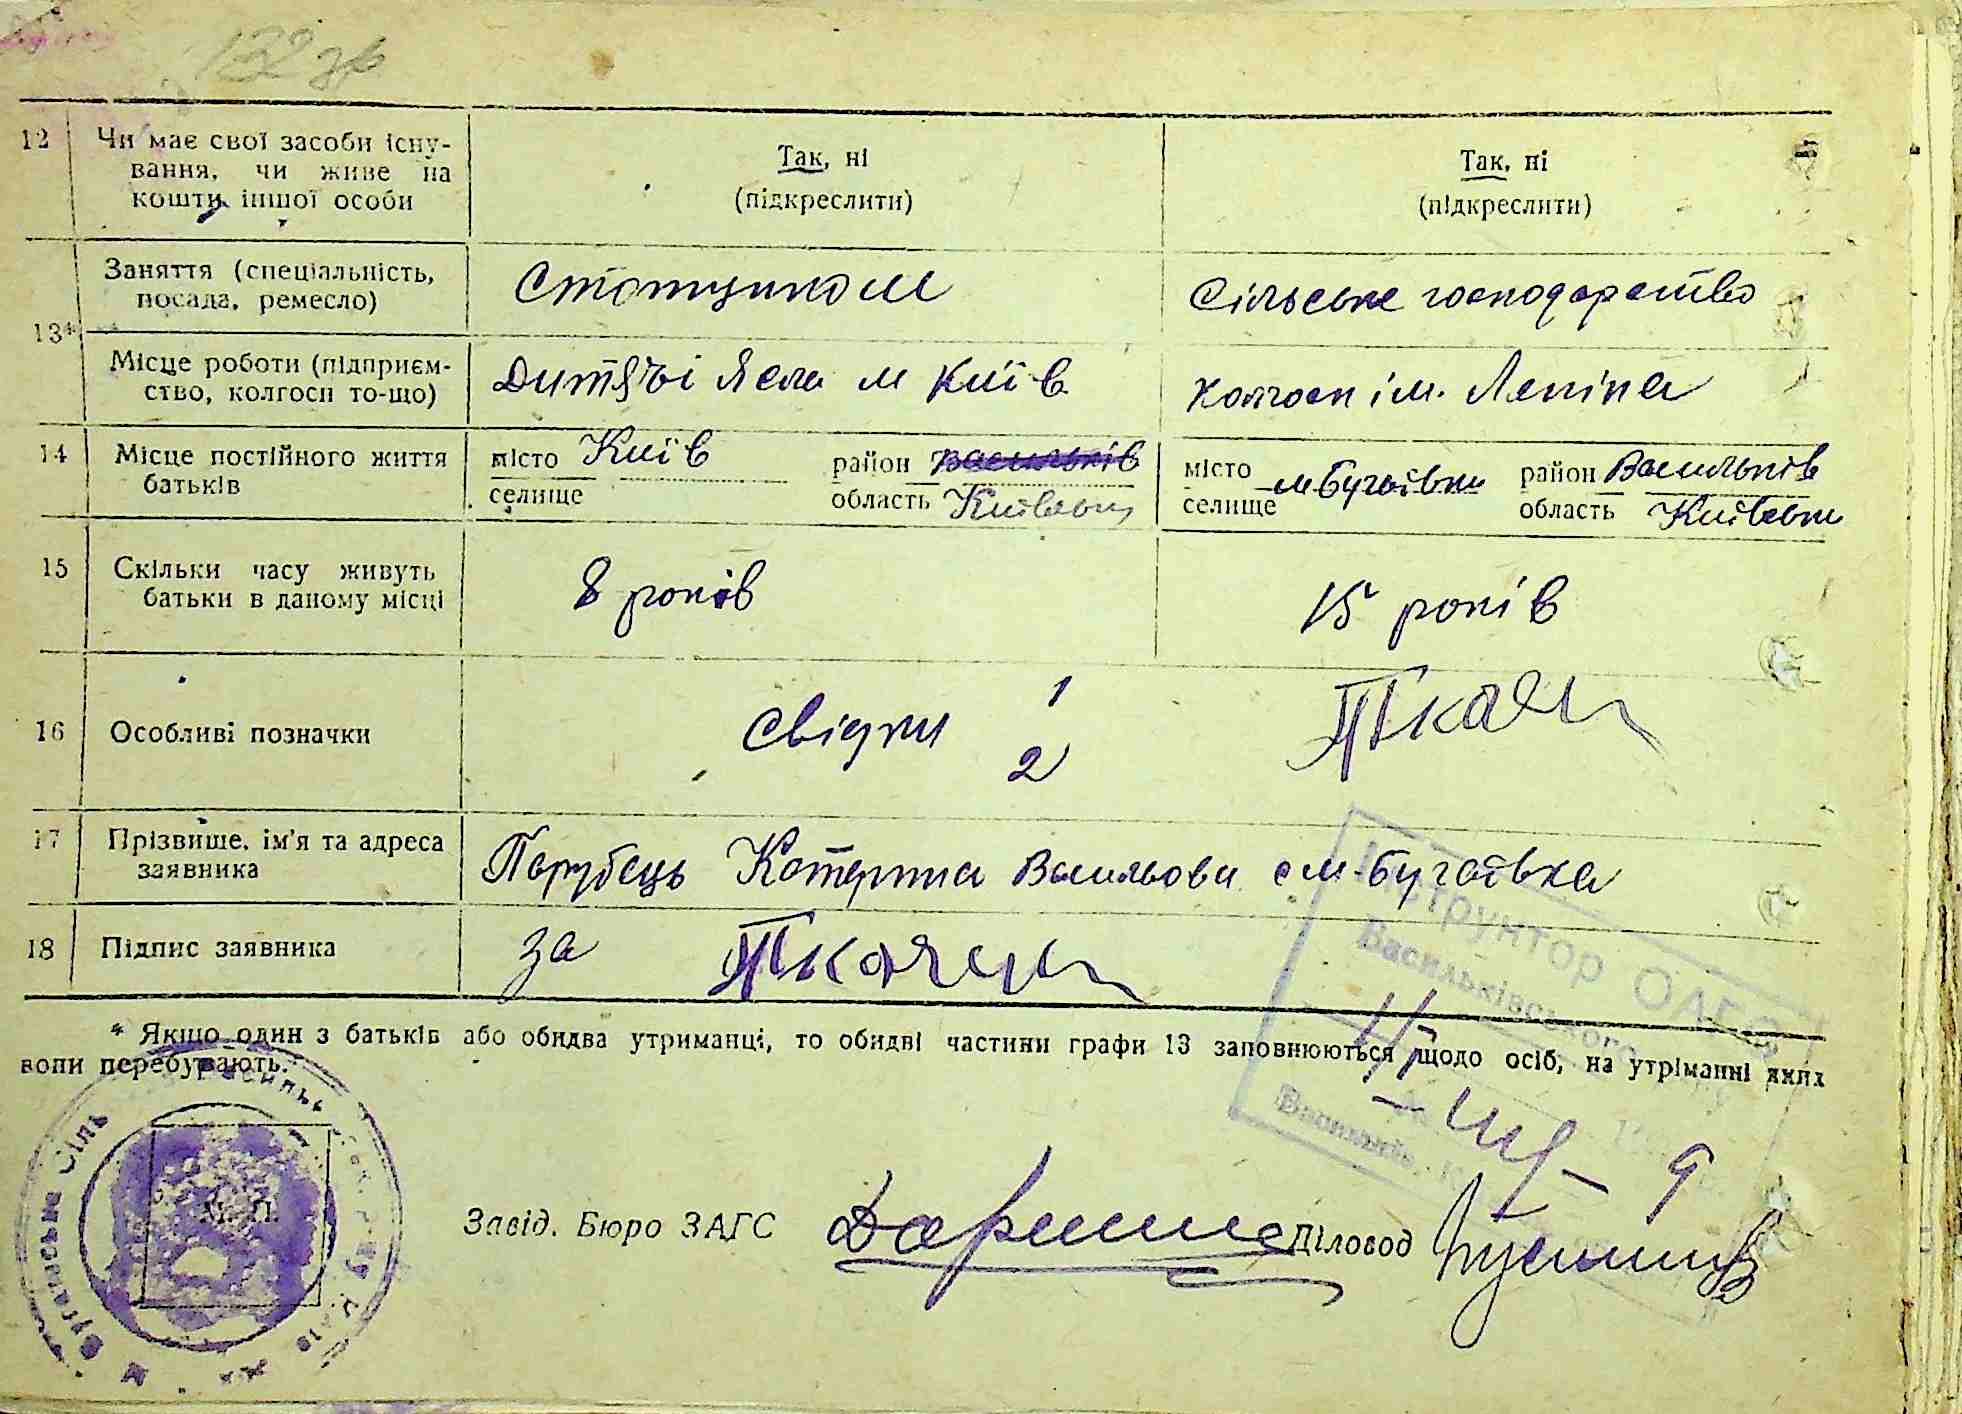 132
12 Чи має свої засоби існу-
вання, чи живе на
кошти іншої особи
Так, ні
(підкреслити)
Так, ні
(підкреслити)
13*
Заняття (спеціальність,
посада, ремесло)
Сільське господарство
Місце роботи (підприєм-
ство, колгосп то-що)
Дитячі Ясла м Київ
колгосп ім. Леніна
14 Місце постійного життя
батьків
місто Київ район Васильків
селище область Київськи
місто м Бугаївки район Васильків
селище область Київськи
15 Скільки часу живуть
батьки в даному місці
8 років
15 років
16 Особливі позначки
Свідки 1
2
Ткач
17 Прізвище, ім'я та адреса
заявника
Парубець Катерина Васильова с м-Бугаївка
18 Підпис заявника
за
* Якщо один з батьків або обидва утриманці, то обидві частини графи 13 заповнюються щодо осіб, на утриманні яких
вони перебувають.
Інструктор ОАГС
Васильківського
М. П.
Завід. Бюро ЗАГС
Діловод